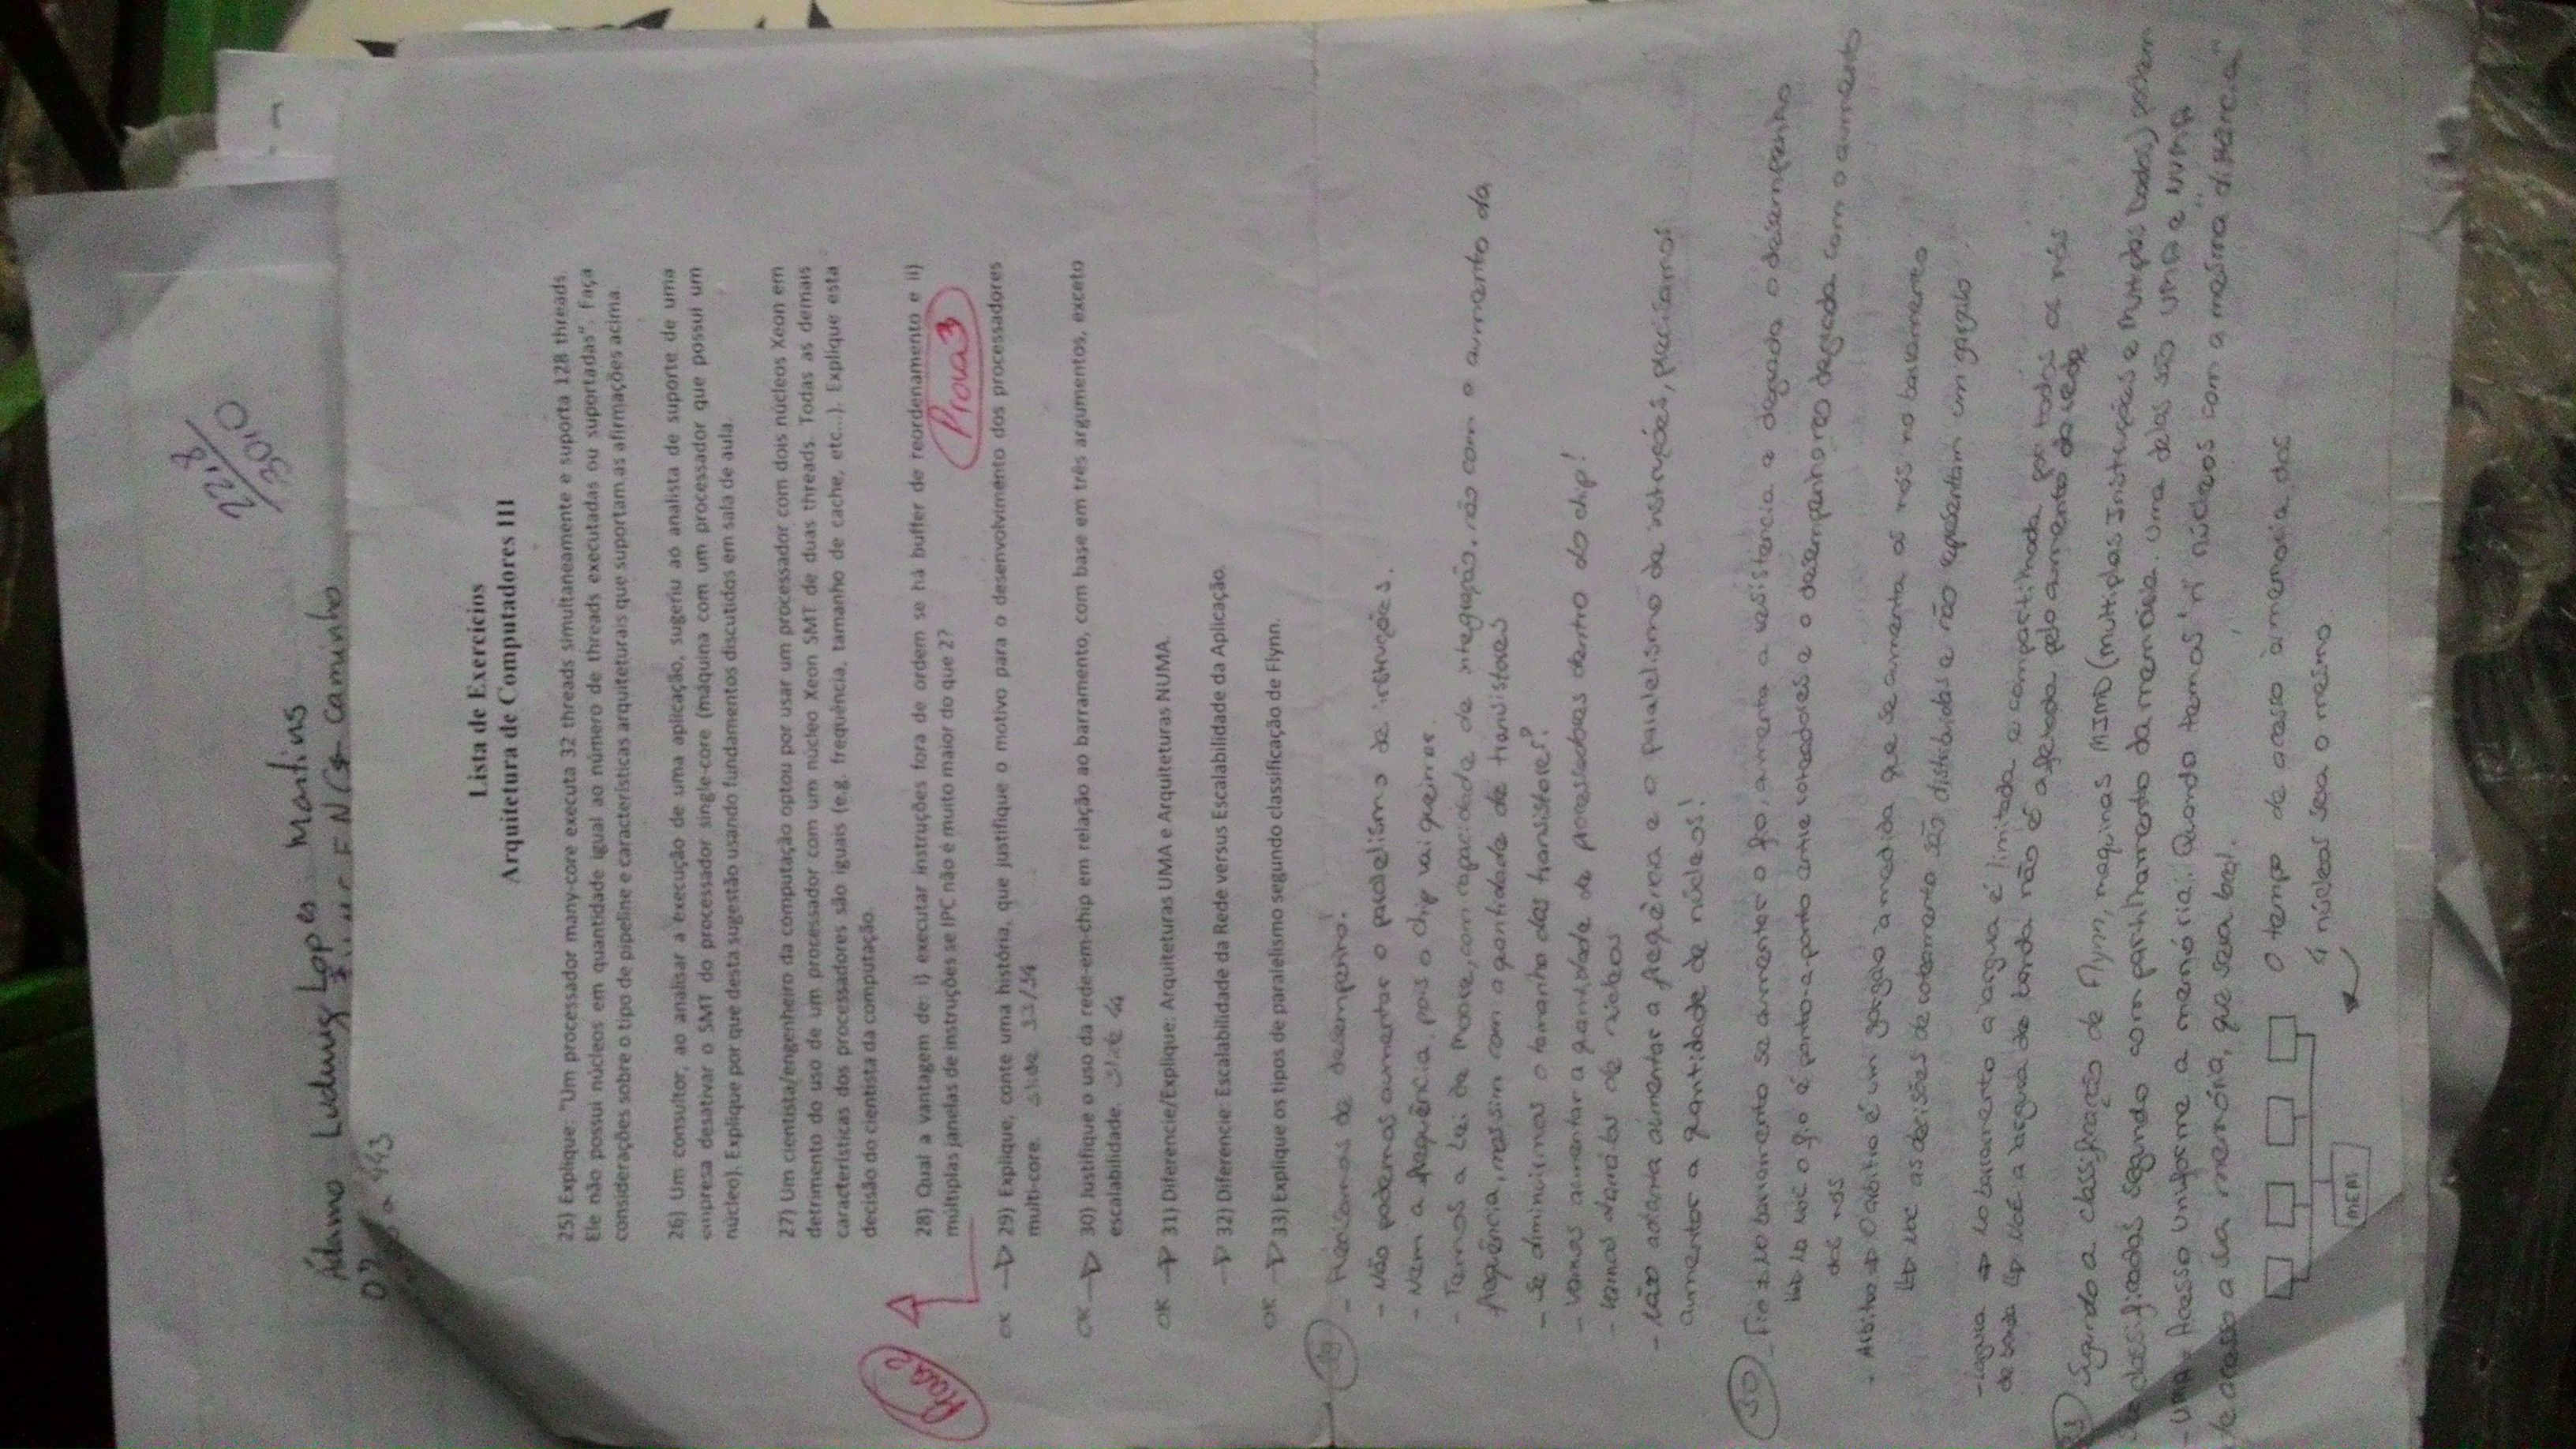 22,8
30,0
Adamo Ludwig Lopes Martins
Caminho
443
Lista de Exercícios
Arquitetura de Computadores III
25) Explique: "Um processador many-core executa 32 threads simultaneamente e suporta 128 threads.
Ele não possui núcleos em quantidade igual ao número de threads executadas ou suportadas". Faça
considerações sobre o tipo de pipeline e características arquiteturais que suportam as afirmações acima.
26) Um consultor, ao analisar a execução de uma aplicação, sugeriu ao analista de suporte de uma
empresa desativar o SMT do processador single-core (máquina com um processador que possui um
núcleo). Explique por que desta sugestão usando fundamentos discutidos em sala de aula.
27) Um cientista/engenheiro da computação optou por usar um processador com dois núcleos Xeon em
detrimento do uso de um processador com um núcleo Xeon SMT de duas threads. Todas as demais
características dos processadores são iguais (e.g. frequência, tamanho de cache, etc...). Explique esta
decisão do cientista da computação.
Prova 2
28) Qual a vantagem de: i) executar instruções fora de ordem se há buffer de reordenamento e ii)
múltiplas janelas de instruções se IPC não é muito maior do que 2?
Prova 3
OK → 29) Explique, conte uma história, que justifique o motivo para o desenvolvimento dos processadores
multi-core. slide 33/34
OK → 30) Justifique o uso da rede-em-chip em relação ao barramento, com base em três argumentos, exceto
escalabilidade. Slide
OK → 31) Diferencie/Explique: Arquiteturas UMA e Arquiteturas NUMA.
→ 32) Diferencie: Escalabilidade da Rede versus Escalabilidade da Aplicação.
OK → 33) Explique os tipos de paralelismo segundo classificação de Flynn.
- Precisamos de desempenho!
- Não podemos aumentar o paralelismo de instruções.
- Nem a frequência, pois o chip vai queimar.
- Temos a Lei de Moore, com capacidade de integração, não com o aumento da
freqência, mas sim com a qantidade de transistores
- Se diminuirmos o tamanho dos transistores?
- Vamos aumentar a qantidade de processadores dentro do chip!
- Vamos chamá-los de núcleos
- Não adianta aumentar a freqência e o paralelismo de instruções, precisamos
aumentar a qantidade de núcleos!
30) - Fio → No barramento se aumentar o fio, aumenta a resistencia e degrada o desempenho
Na NoC o fio é ponto-a-ponto entre roteadores e o desempenho não degrada com o aumento
dos nós
- Árbitro → O árbitro é um gargalo à medida que se aumenta os nós no barramento
NoC as decisões de roteamento são distribuídas e não representam um gargalo
- Lagura → No barramento a largura é limitada e compartilhada por todos os nós
de banda NoC a largura de banda não é afetada pelo aumento da rede
Segundo a classificação de Flynn, maquinas MIMD (Multiplas Instruções e Multiplos Dados) podem
classificadas segundo compartilhamento da memória. Uma delas são UMA e NUMA
- UMA - Acesso Uniforme a memória: Quando temos 'n' núcleos com a mesma "distância"
de acesso a sua memória, que será boa.
O tempo de acesso à memoria dos
4 núcleos sera o mesmo
MEM